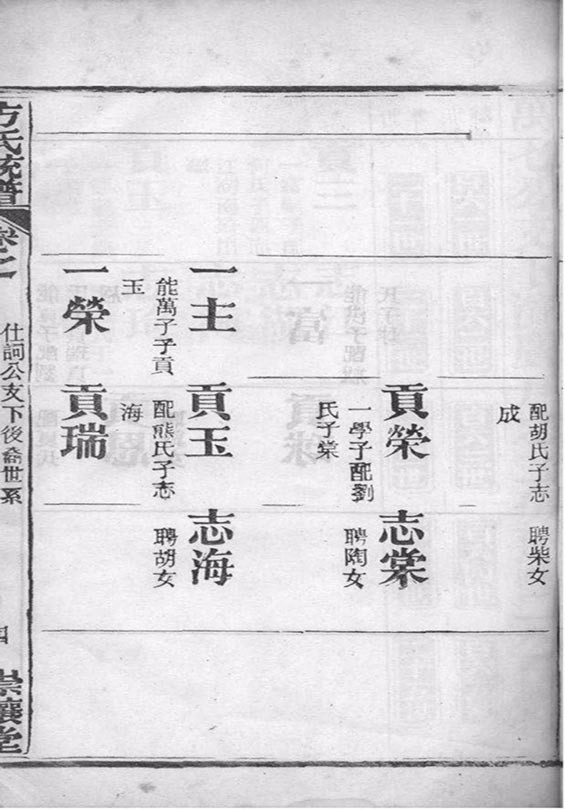 配胡氏子志
成
聘柴女
貢榮
一學子配劉
氏子棠
志棠
聘陶女
一主
能萬子子貢
玉
貢玉
配熊氏子志
海
志海
聘胡女
一榮
貢瑞
方氏統譜
卷之一
仕詞公支下後裔世系
四
崇讓堂